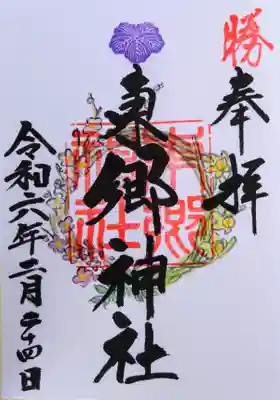 勝
奉拝
東郷神社
東郷神社
令和六年二月二十四日